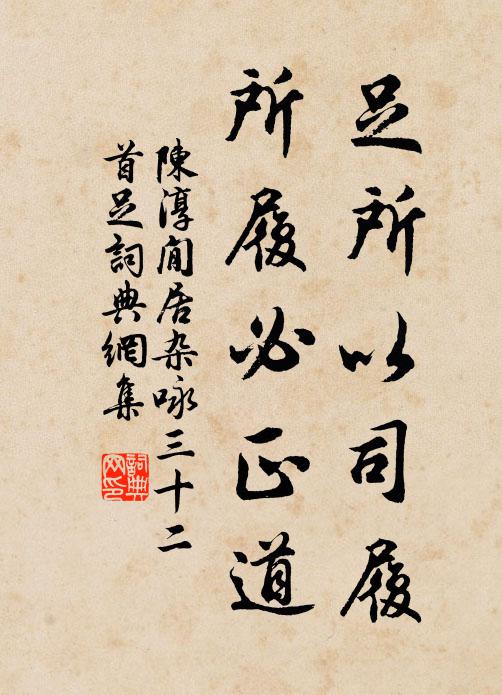 足所以司履
所履必正道
陳淳閒居杂咏三十二
首足詞典網集
詞典網印